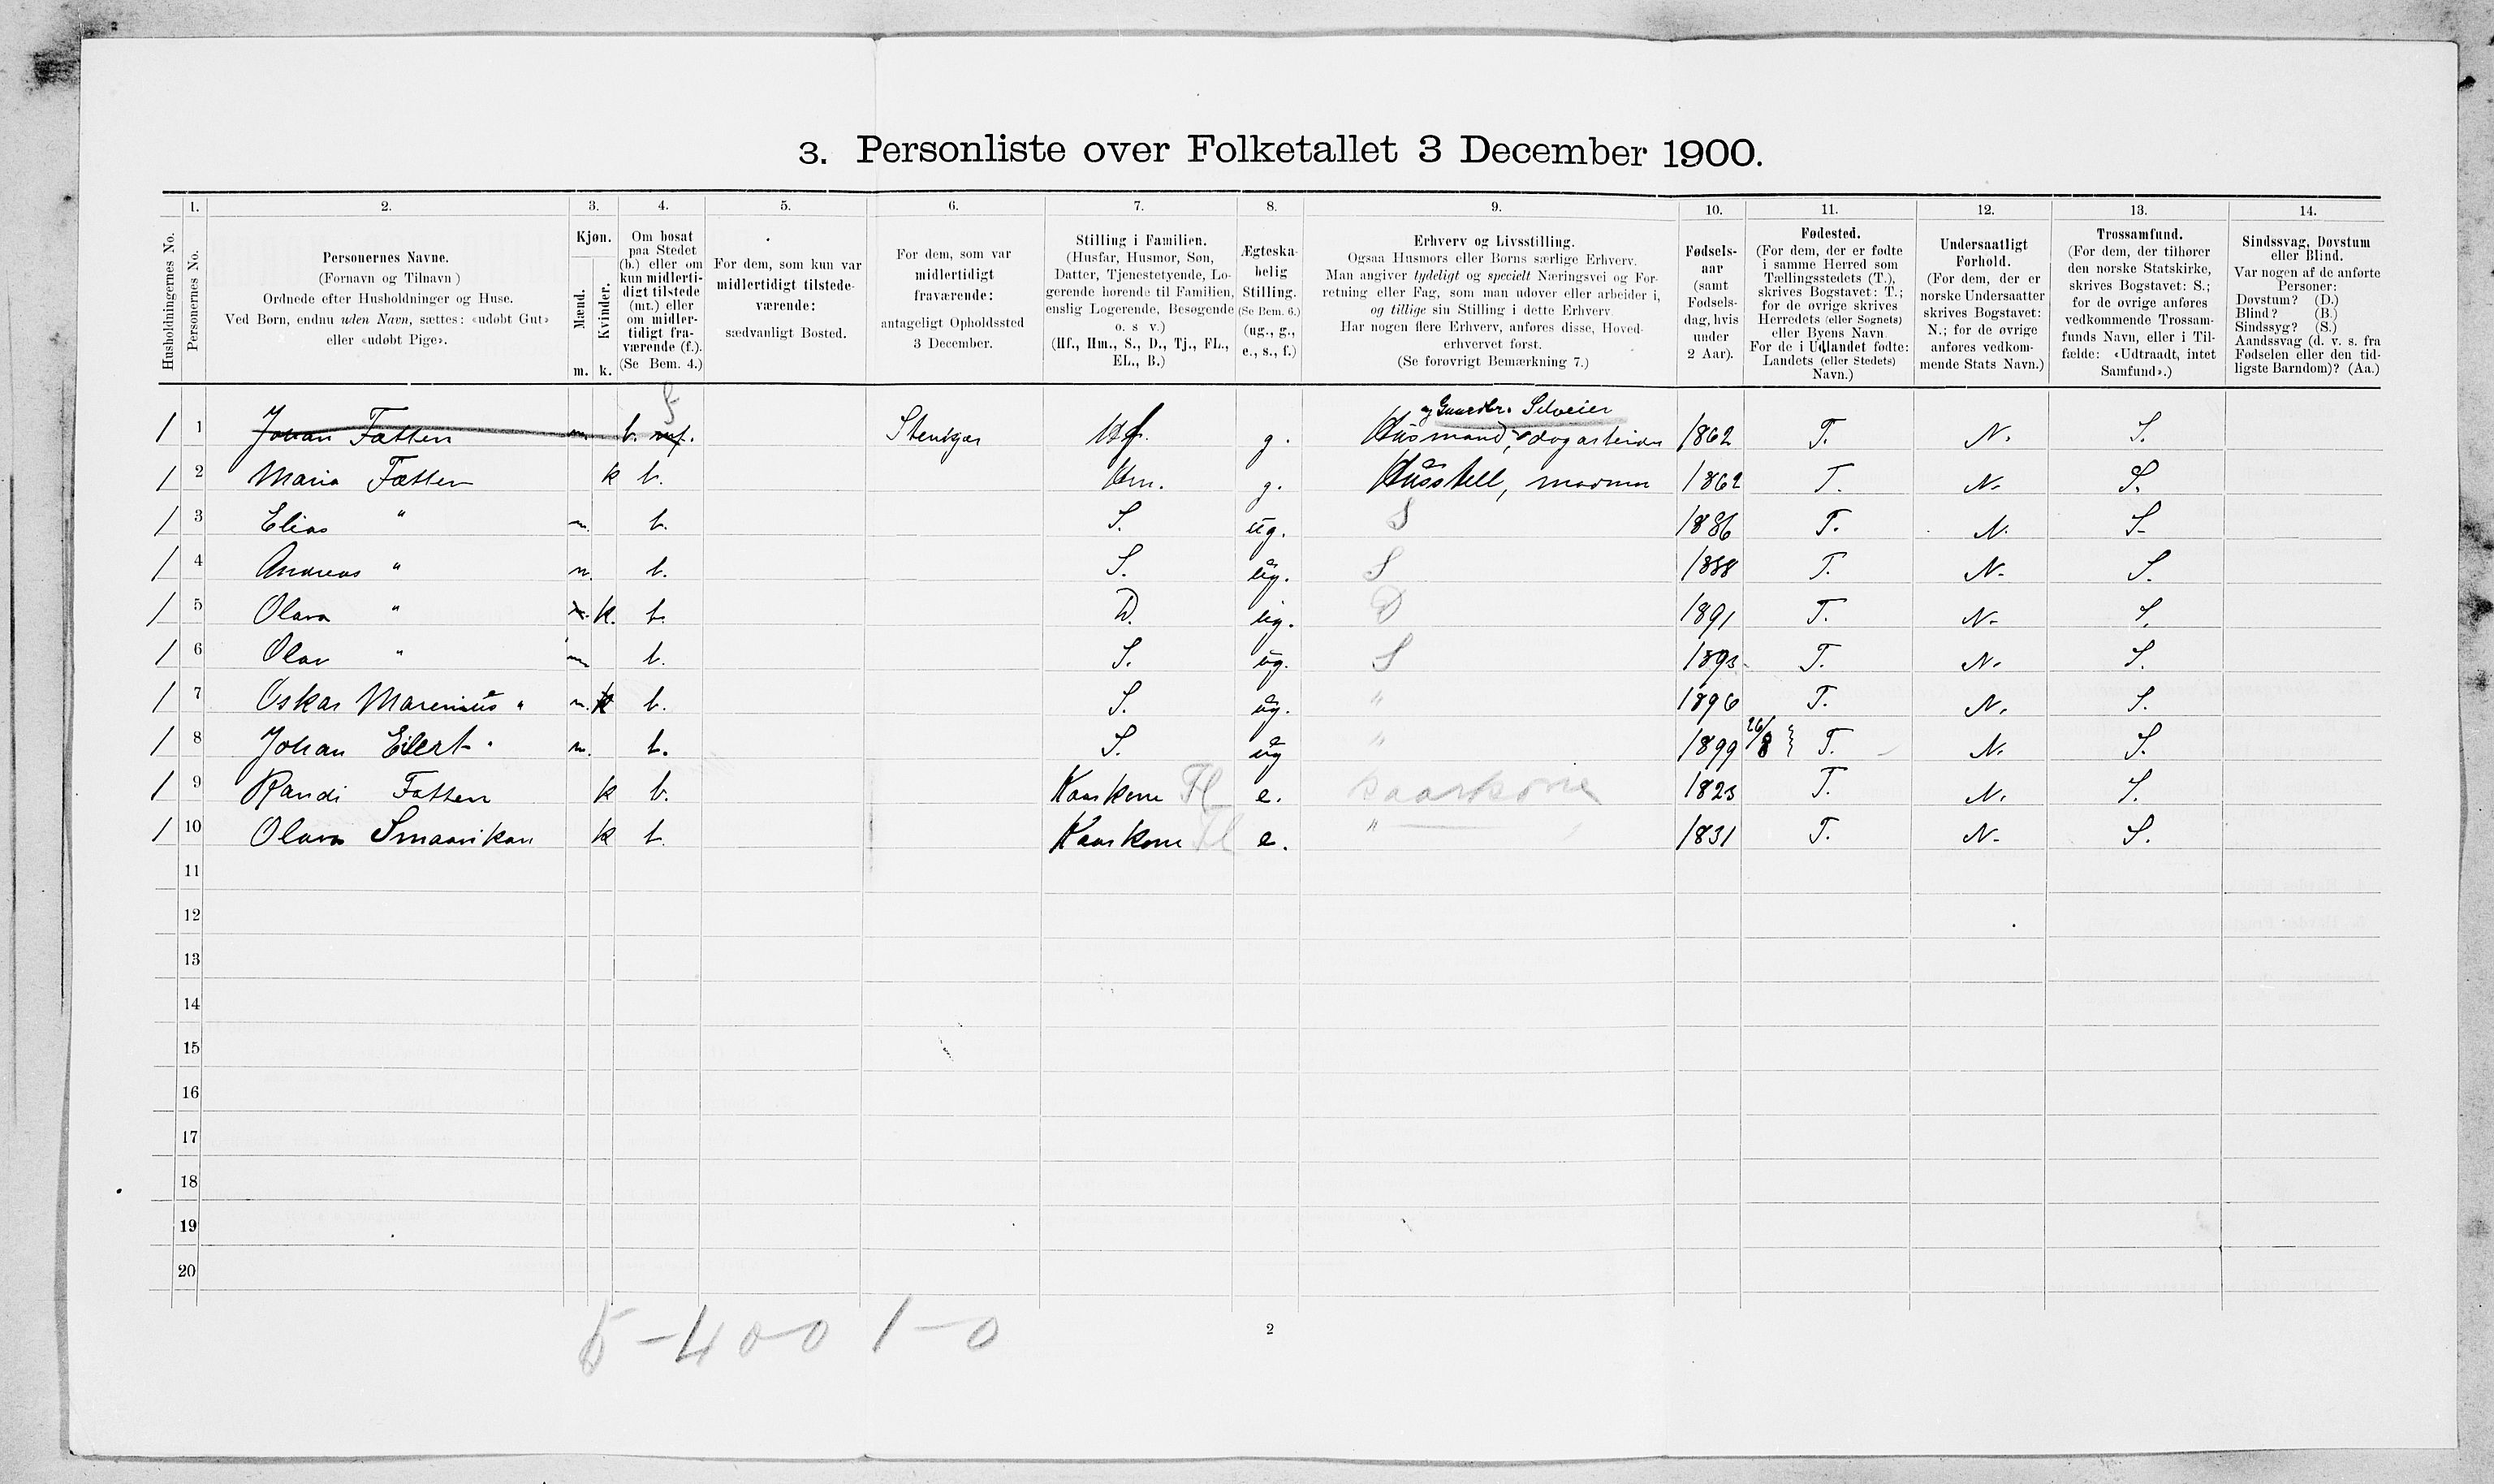 3. Personliste over Folketallet 3 December 1900.
Husholdningernes No.
1.
Personernes No.
2.
Personernes Navne.
(Fornavn og Tilnavn)
Ordnede efter Husholdninger og Huse.
Ved Børn, endnu uden Navn, sættes: «udøbt Gut»
eller «udøbt Pige».
3.
Kjøn.
Mænd.
m.
Kvinder.
k.
4.
Om bosat
paa Stedet
(b.) eller om
kun midlerti-
digt tilstede
(mt.) eller
om midler-
tidigt fra-
værende (f.).
(Se Bem. 4.)
5.
For dem, som kun var
midlertidigt tilstede-
værende:
sædvanligt Bosted.
6.
For dem, som var
midlertidigt
fraværende:
antageligt Opholdssted
3 December.
7.
Stilling i Familien.
(Husfar, Husmor, Søn,
Datter, Tjenestetyende, Lo-
gerende hørende til Familien,
enslig Logerende, Besøgende
o. s v.)
(Hf., Hm., S., D., Tj., FL.,
EL., B.)
8.
Ægteska-
belig
Stilling.
(Se Bem. 6.)
(ug., g.,
e., s., f.)
9.
Erhverv og Livsstilling.
Ogsaa Husmors eller Børns særlige Erhverv.
Man angiver tydeligt og specielt Næringsvei og For-
retning eller Fag, som man udøver eller arbeider i,
og tillige sin Stilling i dette Erhverv.
Har nogen flere Erhverv, anføres disse, Hoved-
erhvervet først.
(Se forøvrigt Bemærkning 7.)
10.
Fødsels-
aar
(samt
Fødsels-
dag, hvis
under
2 Aar).
11.
Fødested.
(For dem, der er fødte
i samme Herred som
Tællingsstedets (T.),
skrives Bogstavet: T.;
for de øvrige skrives
Herredets (eller Sognets)
eller Byens Navn
For de i Udlandet fødte:
Landets (eller Stedets)
Navn.)
12.
Undersaatligt
Forhold.
(For dem, der er
norske Undersaatter
skrives Bogstavet:
N.; for de øvrige
anføres vedkom-
mende Stats Navn.)
13.
Trossamfund.
(For dem, der tilhører
den norske Statskirke,
skrives Bogstavet: S.;
for de øvrige anføres
vedkommende Trossam-
funds Navn, eller i Til-
fælde: «Udtraadt, intet
Samfund».)
14.
Sindssvag, Døvstum
eller Blind.
Var nogen af de anførte
Personer:
Døvstum? (D.)
Blind? (B.)
Sindssyg? (S.)
Aandssvag (d. v. s. fra
Fødselen eller den tid-
ligste Barndom)? (Aa.)
f
og Selveier
1 1 Johan Fætten m. b. mf. Stenkjær Hf. g. Husmand, dagarbeider 1862 T. N. S.
1 2 Maria Fætten k b. Hm. g. Husstell, 1862 T. N. S.
1 3 Elias " m. b. S. ug. S 1886 T. N. S.
1 4 Andreas " m. b. S. ug. S 1888 T. N. S.
1 5 Olava " m. k. b. D. ug. D 1891 T. N. S.
1 6 Olav " m b. S. ug. S 1893 T. N. S.
1 7 Oskar Marenius " m. k b. S. ug. " 1896 T. N. S.
1 8 Johan Eilert " m. b. S. ug " 1899 26/8 } T. N. S.
1 9 Randi Fætten k b. Kaarkone Fl e. kaarkone 1823 T. N. S.
1 10 Olava Smaavikan k b. Kaarkone Fl e. " 1831 T. N. S.
11
12
13
14
15
16
17
18
19
20
5 - 4 0-0 1-0
2